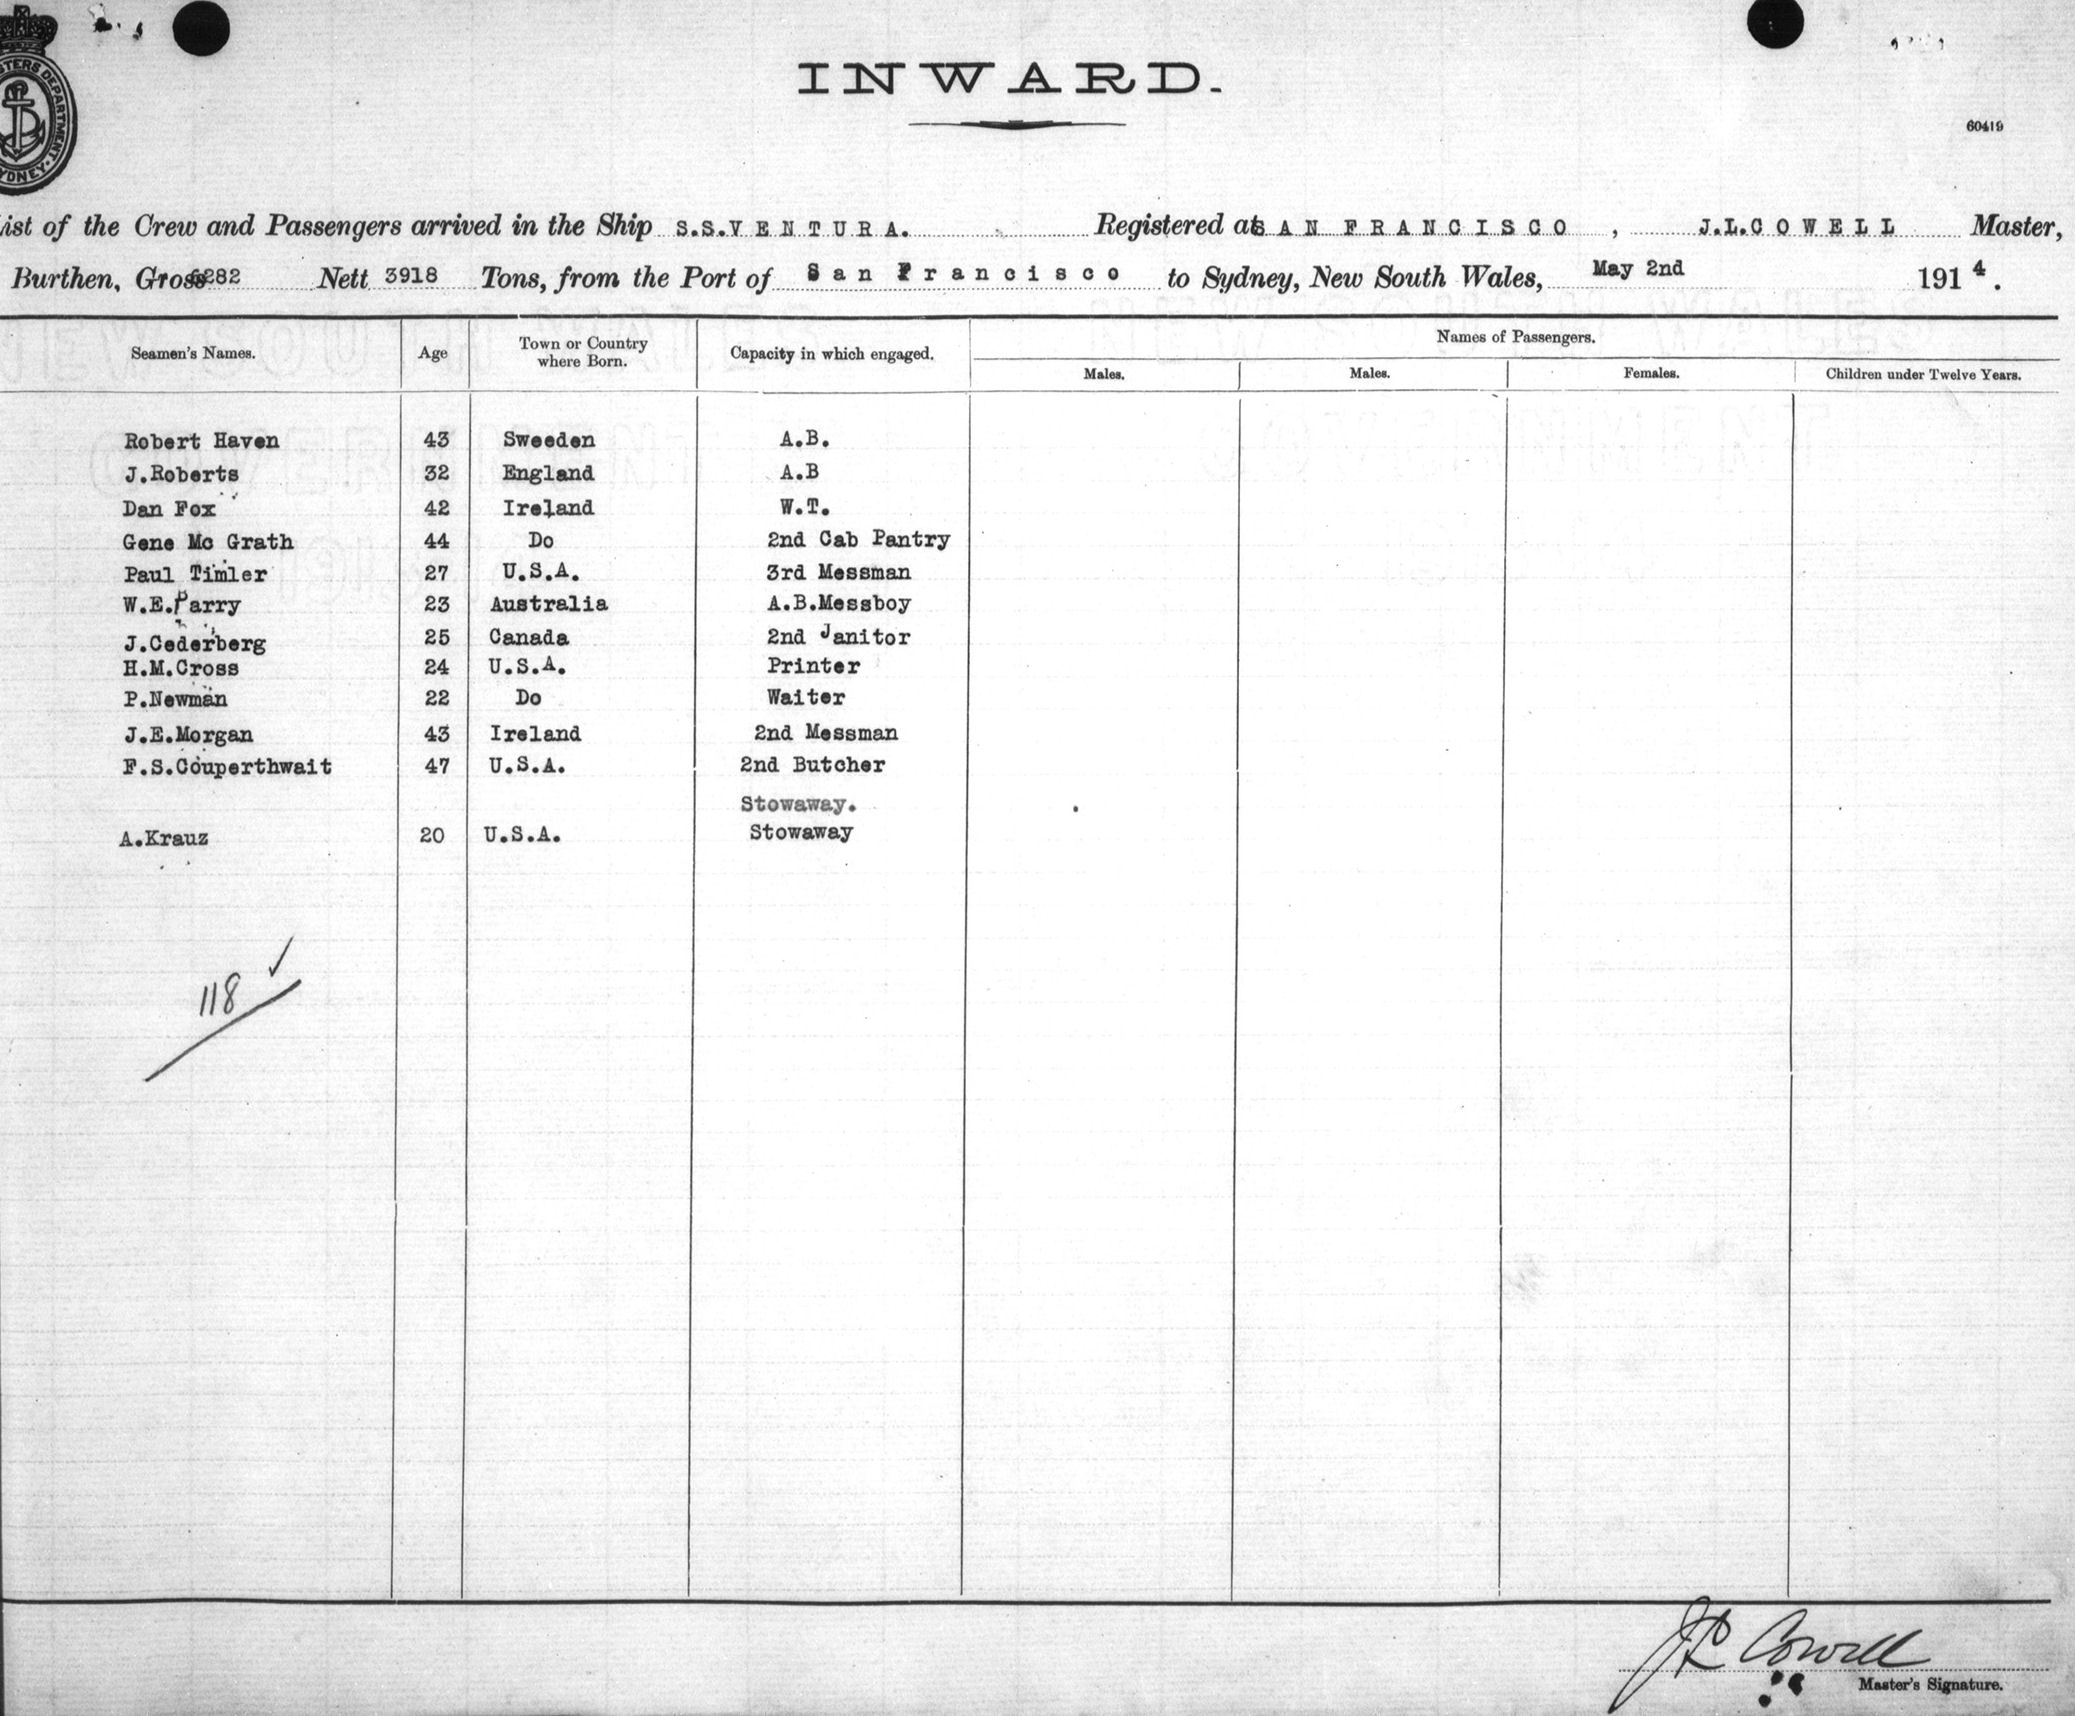 STERS DEPARTMENT. SYDNEY.
INWARD.
60419
List of the Crew and Passengers arrived in the Ship S.S.VENTURA. Registered at SAN FRANCISCO , J.L.COWELL Master,
Burthen, Gross 6282 Nett 3918 Tons, from the Port of San Francisco to Sydney, New South Wales, May 2nd 1914.
Seamen's Names. Age Town or Country where Born. Capacity in which engaged. Names of Passengers.
Males. Males. Females. Children under Twelve Years.
Robert Haven 43 Sweeden A.B.
J.Roberts 32 England A.B
Dan Fox 42 Ireland W.T.
Gene Mc Grath 44 Do 2nd Cab Pantry
Paul Timler 27 U.S.A. 3rd Messman
W.E.Parry 23 Australia A.B.Messboy
J.Cederberg 25 Canada 2nd Janitor
H.M.Cross 24 U.S.A. Printer
P.Newman 22 Do Waiter
J.E.Morgan 43 Ireland 2nd Messman
F.S.Couperthwait 47 U.S.A. 2nd Butcher
Stowaway.
A.Krauz 20 U.S.A. Stowaway
118 ✓
JL Cowell
Master's Signature.